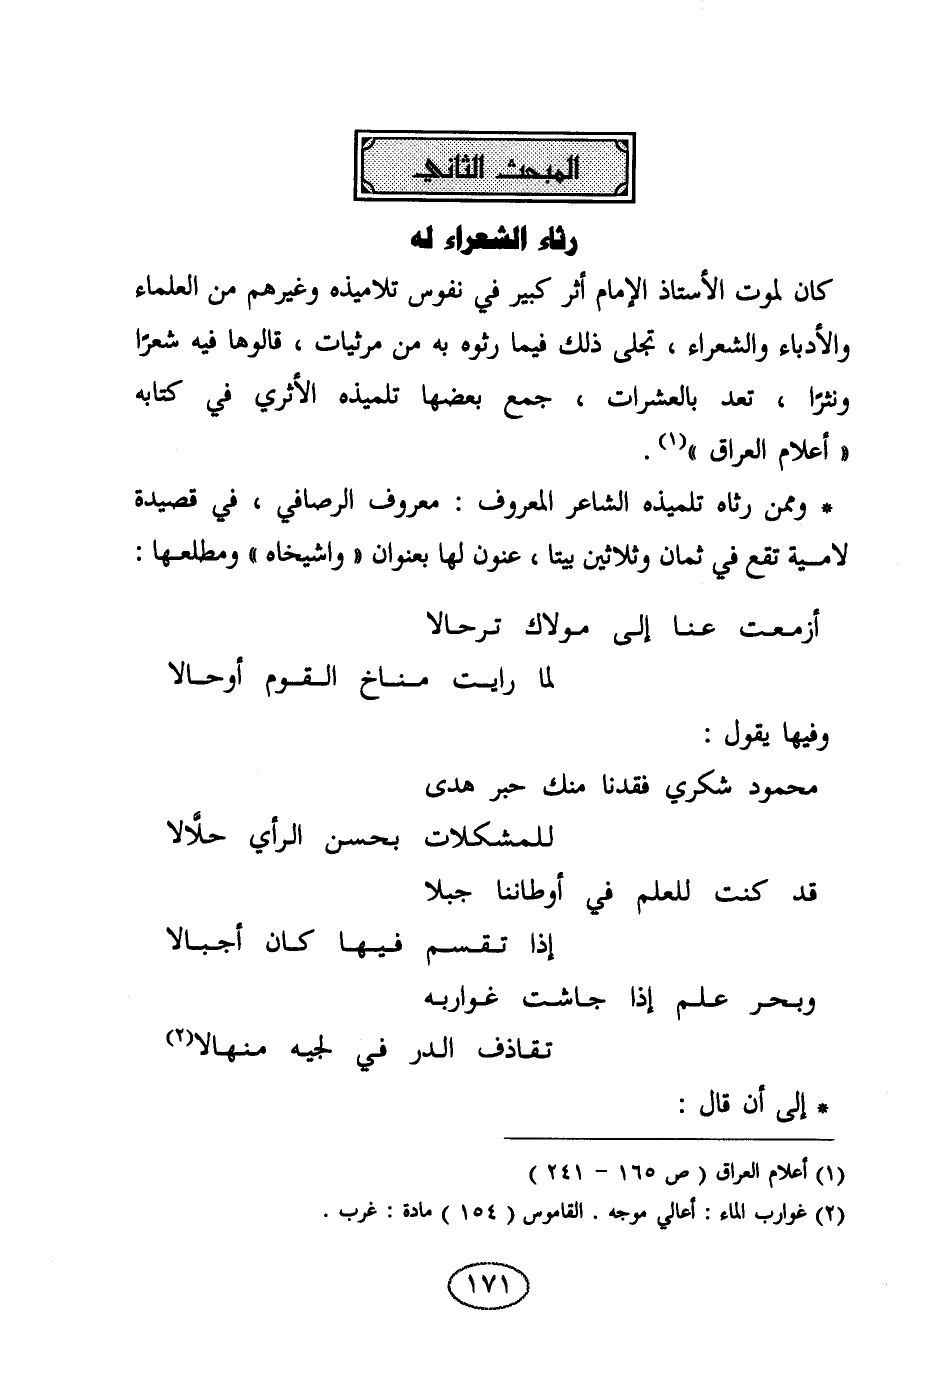 المبحث الثاني
رثاء الشعراء له
كان لموت الأستاذ الإمام أثر كبير في نفوس تلاميذه وغيرهم من العلماء
والأدباء والشعراء ، تجلى ذلك فيما رثوه به من مرثيات ، قالوها فيه شعرًا
ونثرًا ، تعد بالعشرات ، جمع بعضها تلميذه الأثري في كتابه
« أعلام العراق »(١) .
* وممن رثاه تلميذه الشاعر المعروف : معروف الرصافي ، في قصيدة
لامية تقع في ثمان وثلاثين بيتا ، عنون لها بعنوان « واشيخاه » ومطلعها :
أزمعت عنا إلى مولاك ترحالا
لما رايت مناخ القوم أوحالا
وفيها يقول :
محمود شكري فقدنا منك حبر هدى
للمشكلات بحسن الرأي حلَّالا
قد كنت للعلم في أوطاننا جبلا
إذا تقسم فيها كان أجبالا
وبحر علم إذا جاشت غواربه
تقاذف الدر في لجيه منهالا(٢)
* إلى أن قال :
(١) أعلام العراق ( ص ١٦٥ – ٢٤١ )
(٢) غوارب الماء : أعالي موجه . القاموس ( ١٥٤ ) مادة : غرب .
١٧١